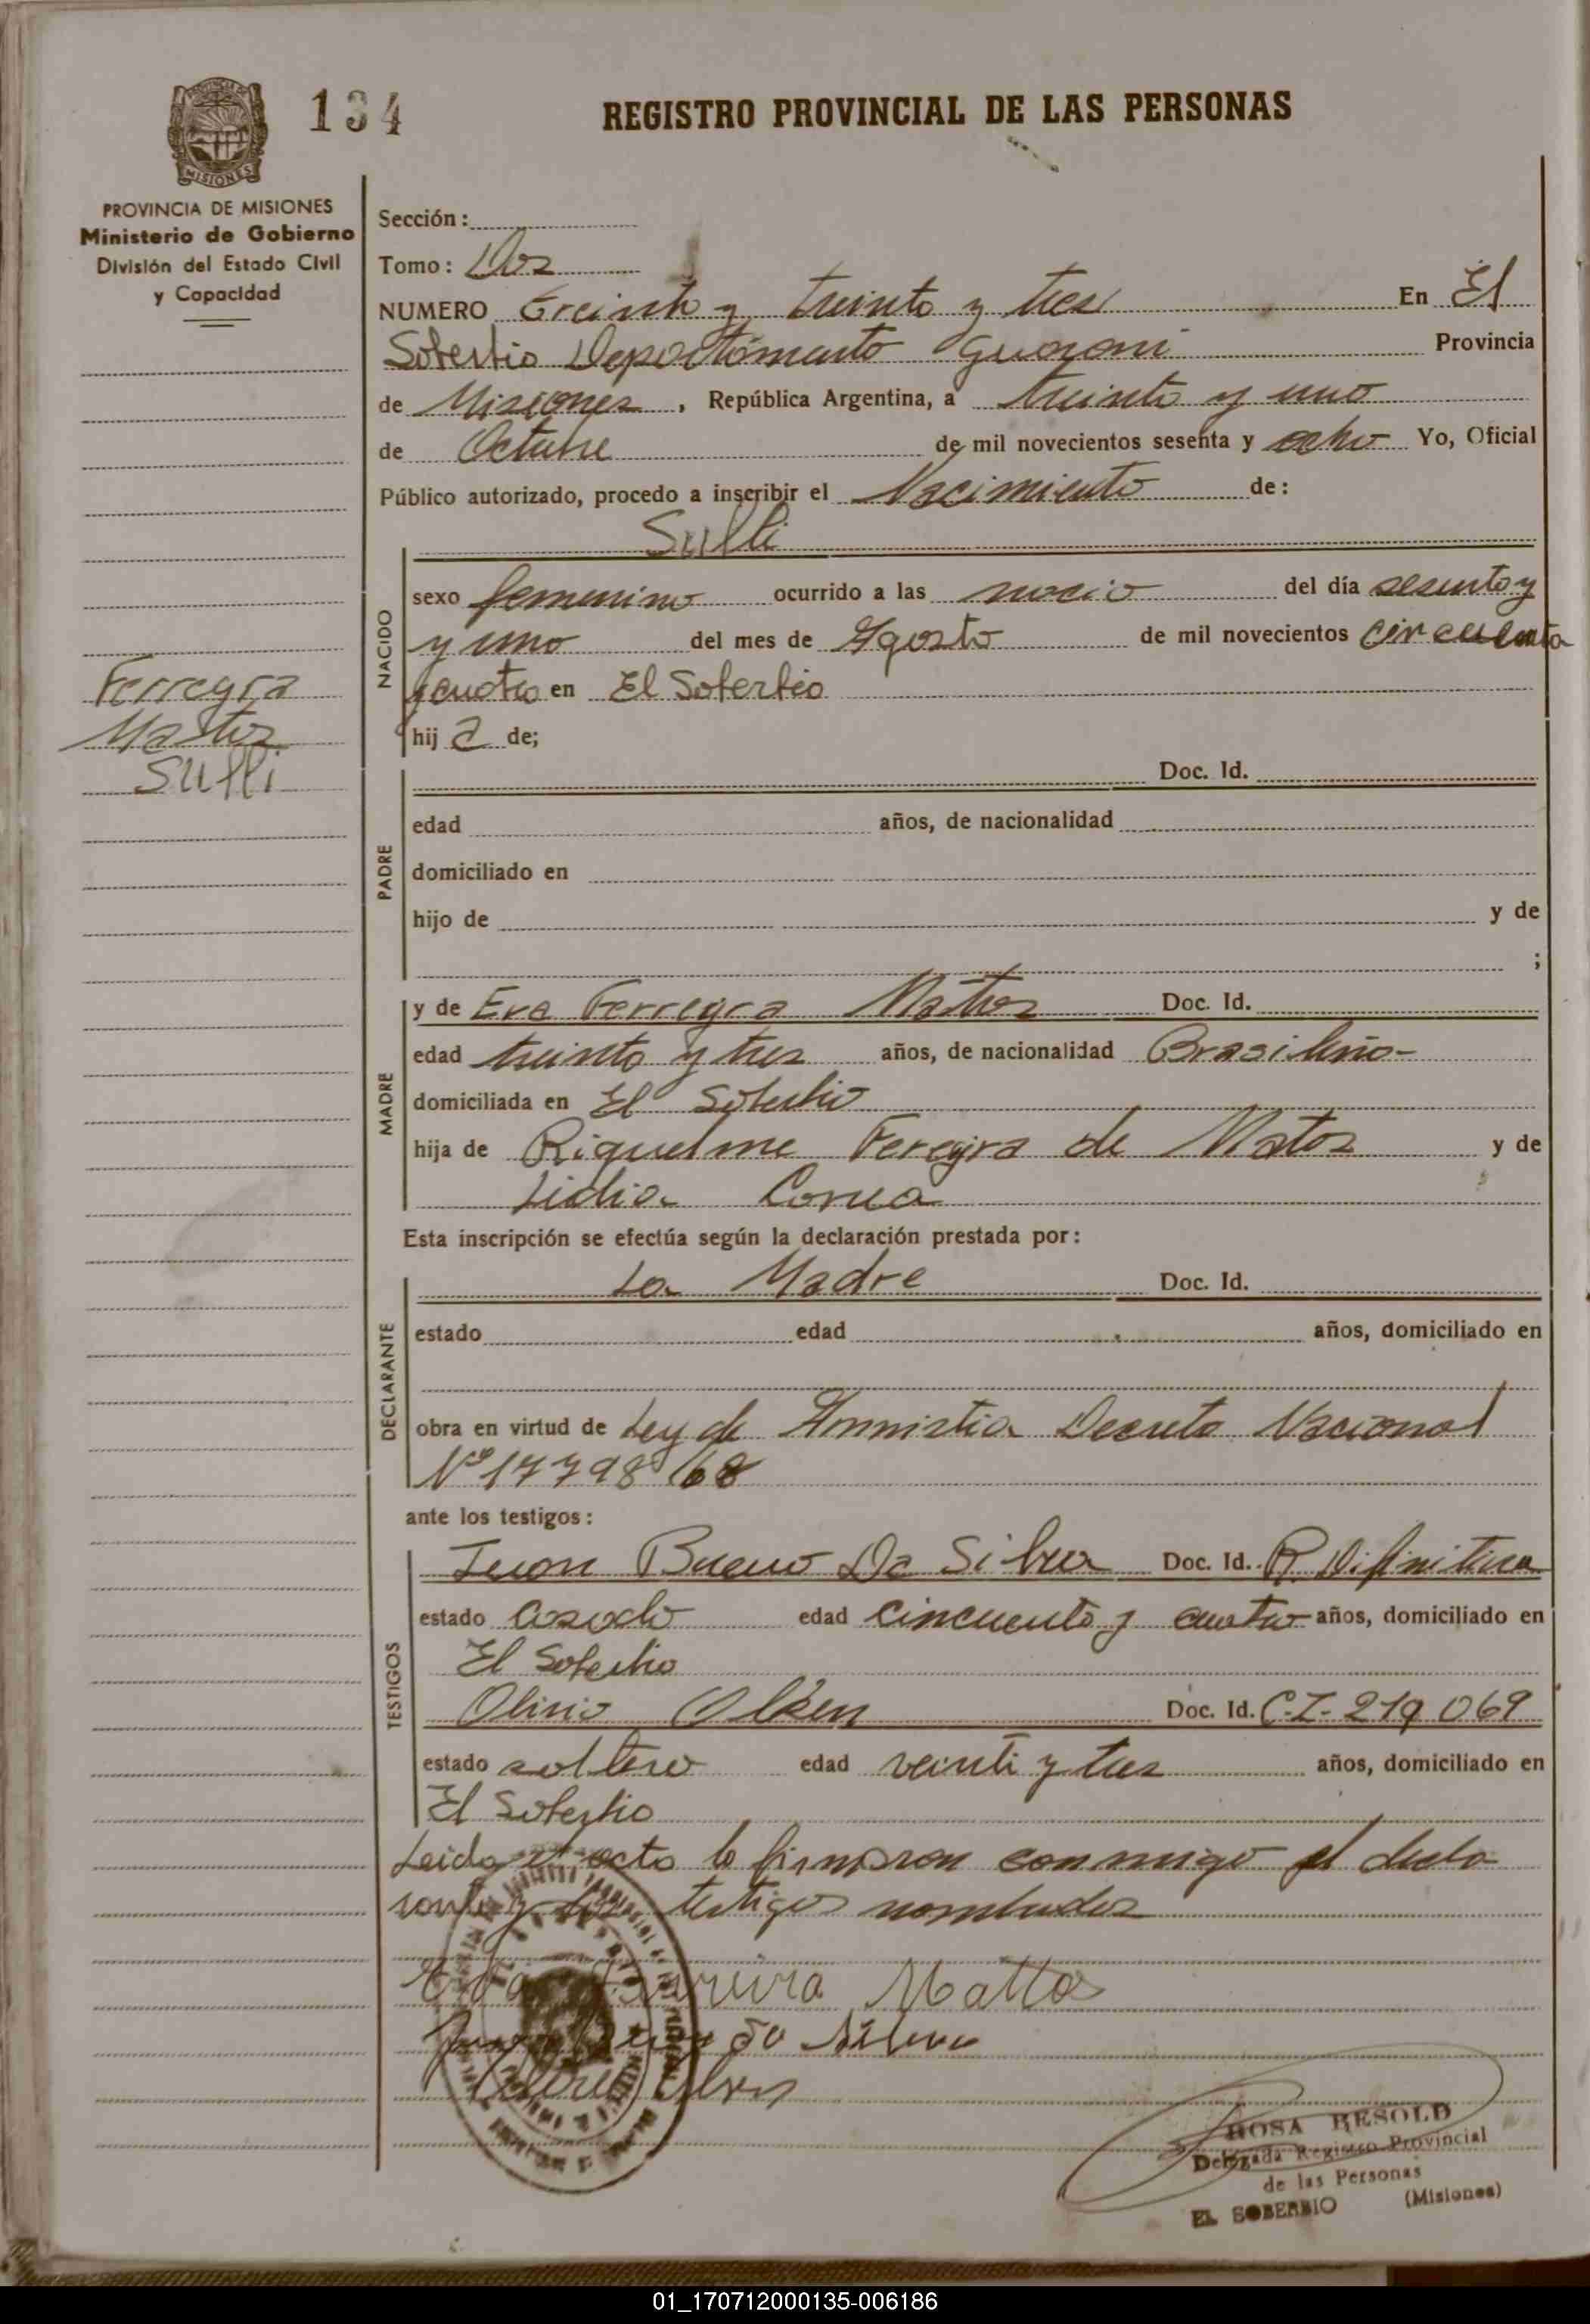 134
REGISTRO PROVINCIAL DE LAS PERSONAS
PROVINCIA DE MISIONES
MISIONES
PROVINCIA DE MISIONES
Ministerio de Gobierno
División del Estado Civil
y Capacidad
Sección:
Tomo: Dos
NUMERO y treinta y tres En El
Soberbio Departamento Guarani Provincia
de Misiones, República Argentina, a treinta y uno
de Octubre de mil novecientos sesenta y ocho Yo, Oficial
Público autorizado, procedo a inscribir el Nacimiento de:
Sulli
NACIDO
sexo femenino ocurrido a las del día
y uno del mes de Agosto de mil novecientos cincuenta
y cuatro en El Soberbio
hij a de;
Ferregra
Mattos
Sulli
PADRE
Doc. Id.
edad años, de nacionalidad
domiciliado en
hijo de y de
;
MADRE
y de Eva Ferregra Mattos Doc. Id.
edad treinta y tres años, de nacionalidad Brasileño-
domiciliada en El Soberbio
hija de Riquelme Feregira de Matos y de
Lidia Correa
Esta inscripción se efectúa según la declaración prestada por:
DECLARANTE
La Madre Doc. Id.
estado edad años, domiciliado en
obra en virtud de Ley de Amnistia Decreto Nacional
Nº 17798/68
ante los testigos:
TESTIGOS
Juan Bueno Da Silva Doc. Id. R. Difinitiva
estado casado edad cincuenta y cuatro años, domiciliado en
El Soberbio
Olirio Olken Doc. Id. C.I. 219069
estado soltero edad veinti y tres años, domiciliado en
El Soberbio
Leida el acta lo firmaron conmigo el decla
rante y los testigos nombrados
Eva Ferreira Mattos
da Silva
ROSA RESOLD
Delegada Registro Provincial
de las Personas
EL SOBERBIO (Misiones)
01_170712000135-006186